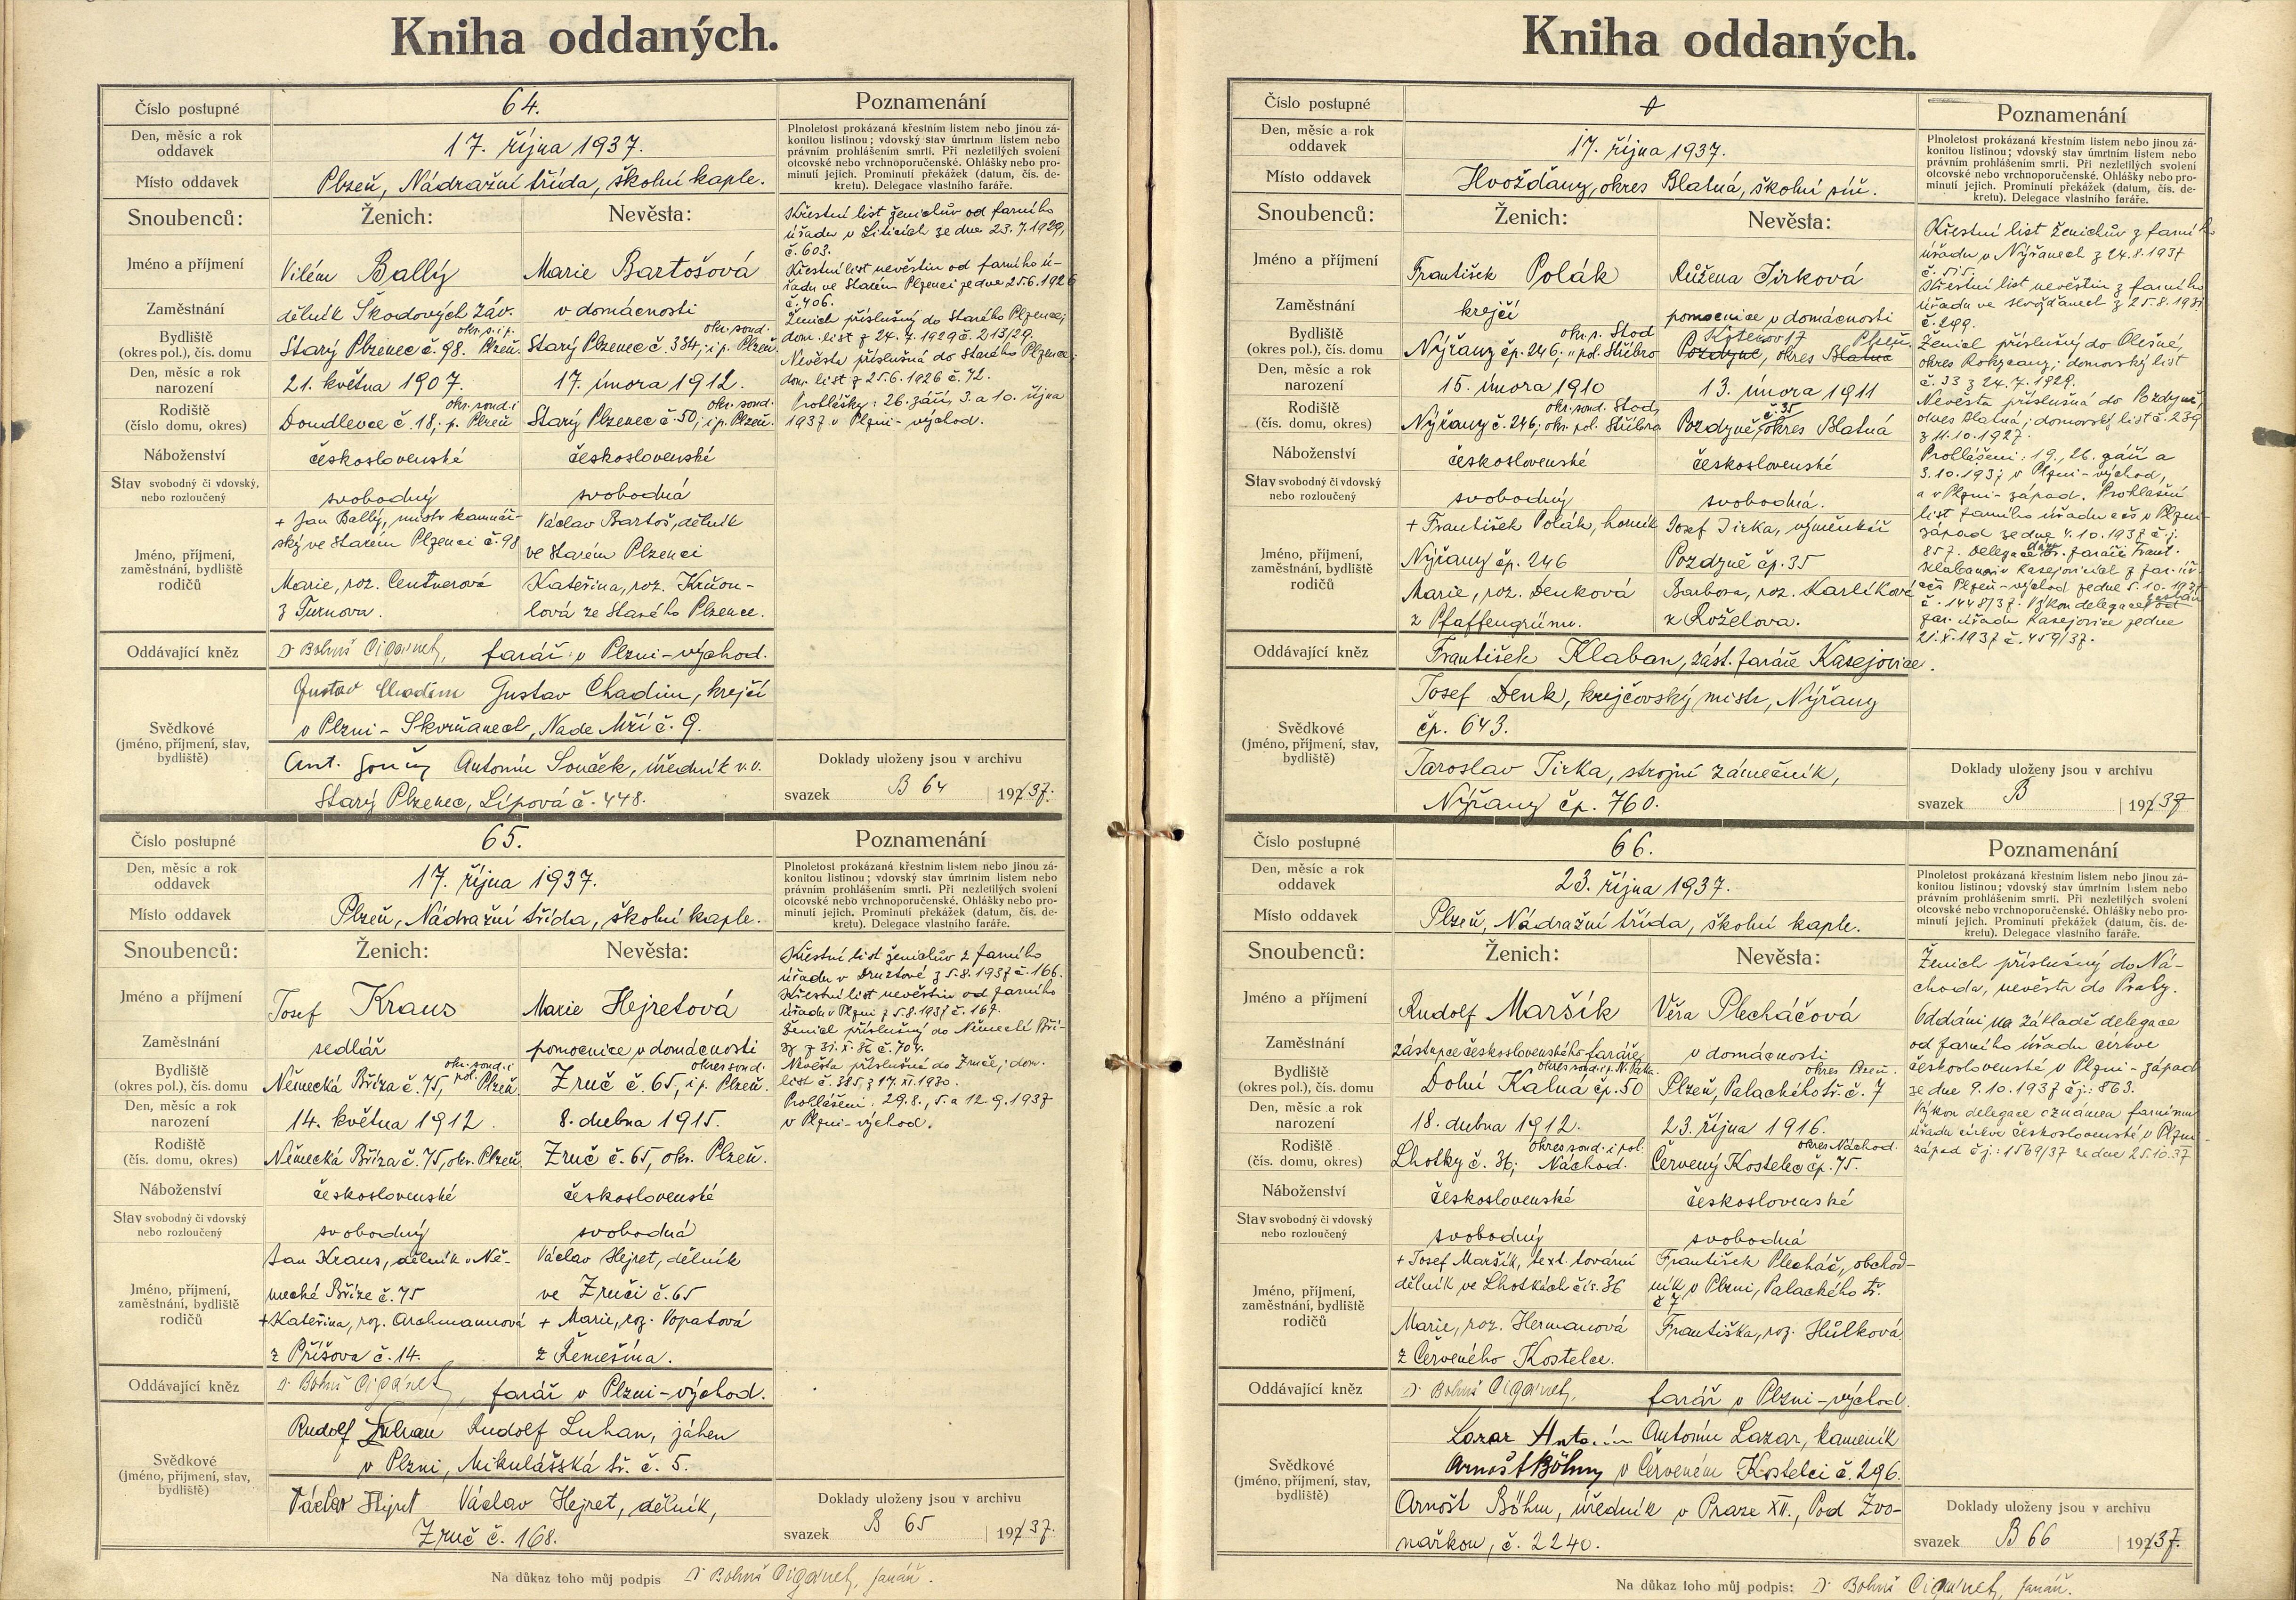 Kniha oddaných.
Číslo postupné
64.
Poznamenání
Den, měsíc a rok
oddavek
17. října 1937.
Místo oddavek
Plzeň, Nádražní třída, školní kaple.
Plnoletost prokázaná křestním listem nebo jinou zá-
konitou listinou; vdovský stav úmrtním listem nebo
právním prohlášením smrti. Při nezletilých svolení
otcovské nebo vrchnoporučenské. Ohlášky nebo pro-
minutí jejich. Prominutí překážek (datum, čís. de-
kretu). Delegace vlastního faráře.
Snoubenců:
Ženich:
Nevěsta:
Jméno a příjmení
Vilém Ballý
Marie Bartošová
Zaměstnání
dělník Škodových záv.
v domácnosti
Bydliště
(okres pol.), čís. domu
okr. s. i p.
Starý Plzenec č. 98. Plzeň
okr. soud.
Starý Plzenec č. 384; i p. Plzeň.
Den, měsíc a rok
narození
21. května 1907.
17. února 1912.
Rodiště
(číslo domu, okres)
okr. soud. i
Doudlevce č. 18; p. Plzeň
okr. soud.
Starý Plzenec č. 50; i p. Plzeň.
Náboženství
československé
československé
Stav svobodný či vdovský,
nebo rozloučený
svobodný
svobodná
Jméno, příjmení,
zaměstnání, bydliště
rodičů
+ Jan Ballý, mistr kamnář-
ský ve Starém Plzenci č. 98
Marie, roz. Centnerová
z Turnova.
Václav Bartoš, dělník
ve Starém Plzenci
Kateřina, roz. Křižon-
lová ze Starého Plzence.
Křestní list ženichův od farního
úřadu v Liticích ze dne 23.7.1929,
č. 603.
Křestní list nevěstin od farního ú-
řadu ve Starém Plzenci ze dne 25.6.1926
č. 406.
Ženich příslušný do Starého Plzence;
dom. list z 24. 7. 1929 č. 213/29.
Nevěsta příslušná do Starého Plzence;
dom. list z 25.6.1926 č. 72.
Prohlášky: 26. září, 3. a 10. října
1937 v Plzni-východ.
Oddávající kněz
Dr Bohuš Cigánek, farář v Plzni-východ.
Svědkové
(jméno, příjmení, stav,
bydliště)
Gustav Chadim Gustav Chadim, krejčí
v Plzni-Skvrňanech, Nade Mží č. 9.
Ant. Souček Antonín Souček, úředník v. v.
Starý Plzenec, Lípová č. 448.
Doklady uloženy jsou v archivu
svazek B 64 1937.
Číslo postupné
65.
Poznamenání
Den, měsíc a rok
oddavek
17. října 1937.
Místo oddavek
Plzeň, Nádražní třída, školní kaple.
Plnoletost prokázaná křestním listem nebo jinou zá-
konitou listinou; vdovský stav úmrtním listem nebo
právním prohlášením smrti. Při nezletilých svolení
otcovské nebo vrchnoporučenské. Ohlášky nebo pro-
minutí jejich. Prominutí překážek (datum, čís. de-
kretu). Delegace vlastního faráře.
Snoubenců:
Ženich:
Nevěsta:
Jméno a příjmení
Josef Kraus
Marie Hejretová
Zaměstnání
sedlář
pomocnice v domácnosti
Bydliště
(okres pol.), čís. domu
okr. soud. i
Německá Bříza č. 75, pol. Plzeň.
okres soud.
Zruč č. 65, i p. Plzeň.
Den, měsíc a rok
narození
14. května 1912.
8. dubna 1915.
Rodiště
(čís. domu, okres)
Německá Bříza č. 75, okr. Plzeň.
Zruč č. 65, okr. Plzeň.
Náboženství
československé
československé
Stav svobodný či vdovský
nebo rozloučený
svobodný
svobodná
Jméno, příjmení,
zaměstnání, bydliště
rodičů
Jan Kraus, dělník v Ně-
mecké Bříze č. 75
+ Kateřina, roz. Archmannová
z Příšova č. 14.
Václav Hejret, dělník
ve Zruči č. 65
+ Marie, roz. Vopatová
z Řemešína.
Křestní list ženichův z farního
úřadu v Druztové z 5.8.1937 č. 166.
Křestní list nevěstin od farního
úřadu v Plzni z 5.8.1937 č. 167.
Ženich příslušný do Německé Bří-
zy z 31. X. 36 č. 704.
Nevěsta příslušná do Zruče; dom.
list č. 385 z 17. XI. 1930.
Prohlášeni: 29.8., 5. a 12. 9. 1937
v Plzni-východ.
Oddávající kněz
Dr Bohuš Cigánek, farář v Plzni-východ.
Svědkové
(jméno, příjmení, stav,
bydliště)
Rudolf Luhan Rudolf Luhan, jáhen
v Plzni, Mikulášská tř. č. 5.
Václav Hejret Václav Hejret, dělník,
Zruč č. 168.
Doklady uloženy jsou v archivu
svazek B 65 1937.
Na důkaz toho můj podpis Dr Bohuš Cigánek, farář.
Kniha oddaných.
Číslo postupné
Poznamenání
Den, měsíc a rok
oddavek
17. října 1937.
Místo oddavek
Hvožďany, okres Blatná, školní síň.
Plnoletost prokázaná křestním listem nebo jinou zá-
konitou listinou; vdovský stav úmrtním listem nebo
právním prohlášením smrti. Při nezletilých svolení
otcovské nebo vrchnoporučenské. Ohlášky nebo pro-
minutí jejich. Prominutí překážek (datum, čís. de-
kretu). Delegace vlastního faráře.
Snoubenců:
Ženich:
Nevěsta:
Jméno a příjmení
František Polák
Růžena Jirková
Zaměstnání
krejčí
pomocnice v domácnosti
Bydliště
(okres pol.), čís. domu
okr. s. Stod
Nýřany čp. 246; " pol. Stříbro
Kyšekov 17 Plzeň.
Pozdyně, okres Blatná
Den, měsíc a rok
narození
15. února 1910
13. února 1911
Rodiště
(čís. domu, okres)
okr. soud. Stod,
Nýřany č. 246; okr. pol. Stříbro
č. 35
Pozdyně, okres Blatná
Náboženství
československé
československé
Stav svobodný či vdovský
nebo rozloučený
svobodný
svobodná.
Jméno, příjmení,
zaměstnání, bydliště
rodičů
+ František Polák, horník
Nýřany čp. 246
Marie, roz. Denková
z Pfaffengrünu.
Josef Jirka, výměnkář
Pozdyně čp. 35
Barbora, roz. Karlíková
z Roželova.
Křestní list ženichův z farního
úřadu v Nýřanech z 24.8.1937
č. 515.
Křestní list nevěstin z farního
úřadu ve Hvožďanech z 25.8.1937
č. 299.
Ženich příslušný do Olešné,
okres Rokycany; domovský list
č. 33 z 24. 7. 1929.
Nevěsta příslušná do Pozdyně,
okres Blatná; domovský list č. 239
z 11. 10. 1927.
Prohlášeni: 19., 26. září a
3. 10. 1937 v Plzni-východ,
a v Plzni-západ. Prohlášení
list farního úřadu cčs v Plzni-
západ ze dne 4. 10. 1937 č. j.
857. Delegace dána br. faráři Frant.
Klabanovi v Kasejovicích z far. úř.
cčs Plzeň-východ ze dne 5.10.1937
č. 1448/37. Výkon delegace od
far. úřadu Kasejovice ze dne
21. X. 1937 č. 459/37.
Oddávající kněz
František Klaban, zást. faráře Kasejovice.
Svědkové
(jméno, příjmení, stav,
bydliště)
Josef Denk, krejčovský mistr, Nýřany
čp. 643.
Jaroslav Jirka, strojní zámečník,
Nýřany čp. 760.
Doklady uloženy jsou v archivu
svazek B 1937
Číslo postupné
66.
Poznamenání
Den, měsíc a rok
oddavek
23. října 1937.
Místo oddavek
Plzeň, Nádražní třída, školní kaple.
Plnoletost prokázaná křestním listem nebo jinou zá-
konitou listinou; vdovský stav úmrtním listem nebo
právním prohlášením smrti. Při nezletilých svolení
otcovské nebo vrchnoporučenské. Ohlášky nebo pro-
minutí jejich. Prominutí překážek (datum, čís. de-
kretu). Delegace vlastního faráře.
Snoubenců:
Ženich:
Nevěsta:
Jméno a příjmení
Rudolf Maršík
Věra Plecháčová
Zaměstnání
zástupce československého faráře
v domácnosti
Bydliště
(okres pol.), čís. domu
okres soud. i p. N. Paka.
Dolní Kalná čp. 50
okres Plzeň.
Plzeň, Palackého tř. č. 7
Den, měsíc a rok
narození
18. dubna 1912.
23. října 1916.
Rodiště
(čís. domu, okres)
okres soud. i pol.
Lhotky č. 36; Náchod.
okres Náchod.
Červený Kostelec čp. 75.
Náboženství
československé
československé
Stav svobodný či vdovský
nebo rozloučený
svobodný
svobodná
Jméno, příjmení,
zaměstnání, bydliště
rodičů
+ Josef Maršík, text. tovární
dělník ve Lhotkách čís. 36
Marie, roz. Hermanová
z Červeného Kostelce.
František Plecháč, obchod-
ník v Plzni, Palackého tř.
č 7
Františka, roz. Hůlková
Ženich příslušný do Ná-
choda, nevěsta do Prahy.
Oddáni na základě delegace
od farního úřadu církve
československé v Plzni-západ
ze dne 9. 10. 1937 č j.: 863.
Výkon delegace oznámen farnímu
úřadu církve československé v Plzni-
západ č j.: 1569/37 ze dne 25.10.37
Oddávající kněz
Dr Bohuš Cigánek, farář v Plzni-východ.
Svědkové
(jméno, příjmení, stav,
bydliště)
Lazar Antonín Antonín Lazar, kameník
Arnošt Böhm v Červeném Kostelci č. 296.
Arnošt Böhm, úředník v Praze XII., Pod Zvo-
nařkou, č. 2240.
Doklady uloženy jsou v archivu
svazek B 66 1937.
Na důkaz toho můj podpis: Dr Bohuš Cigánek, farář.